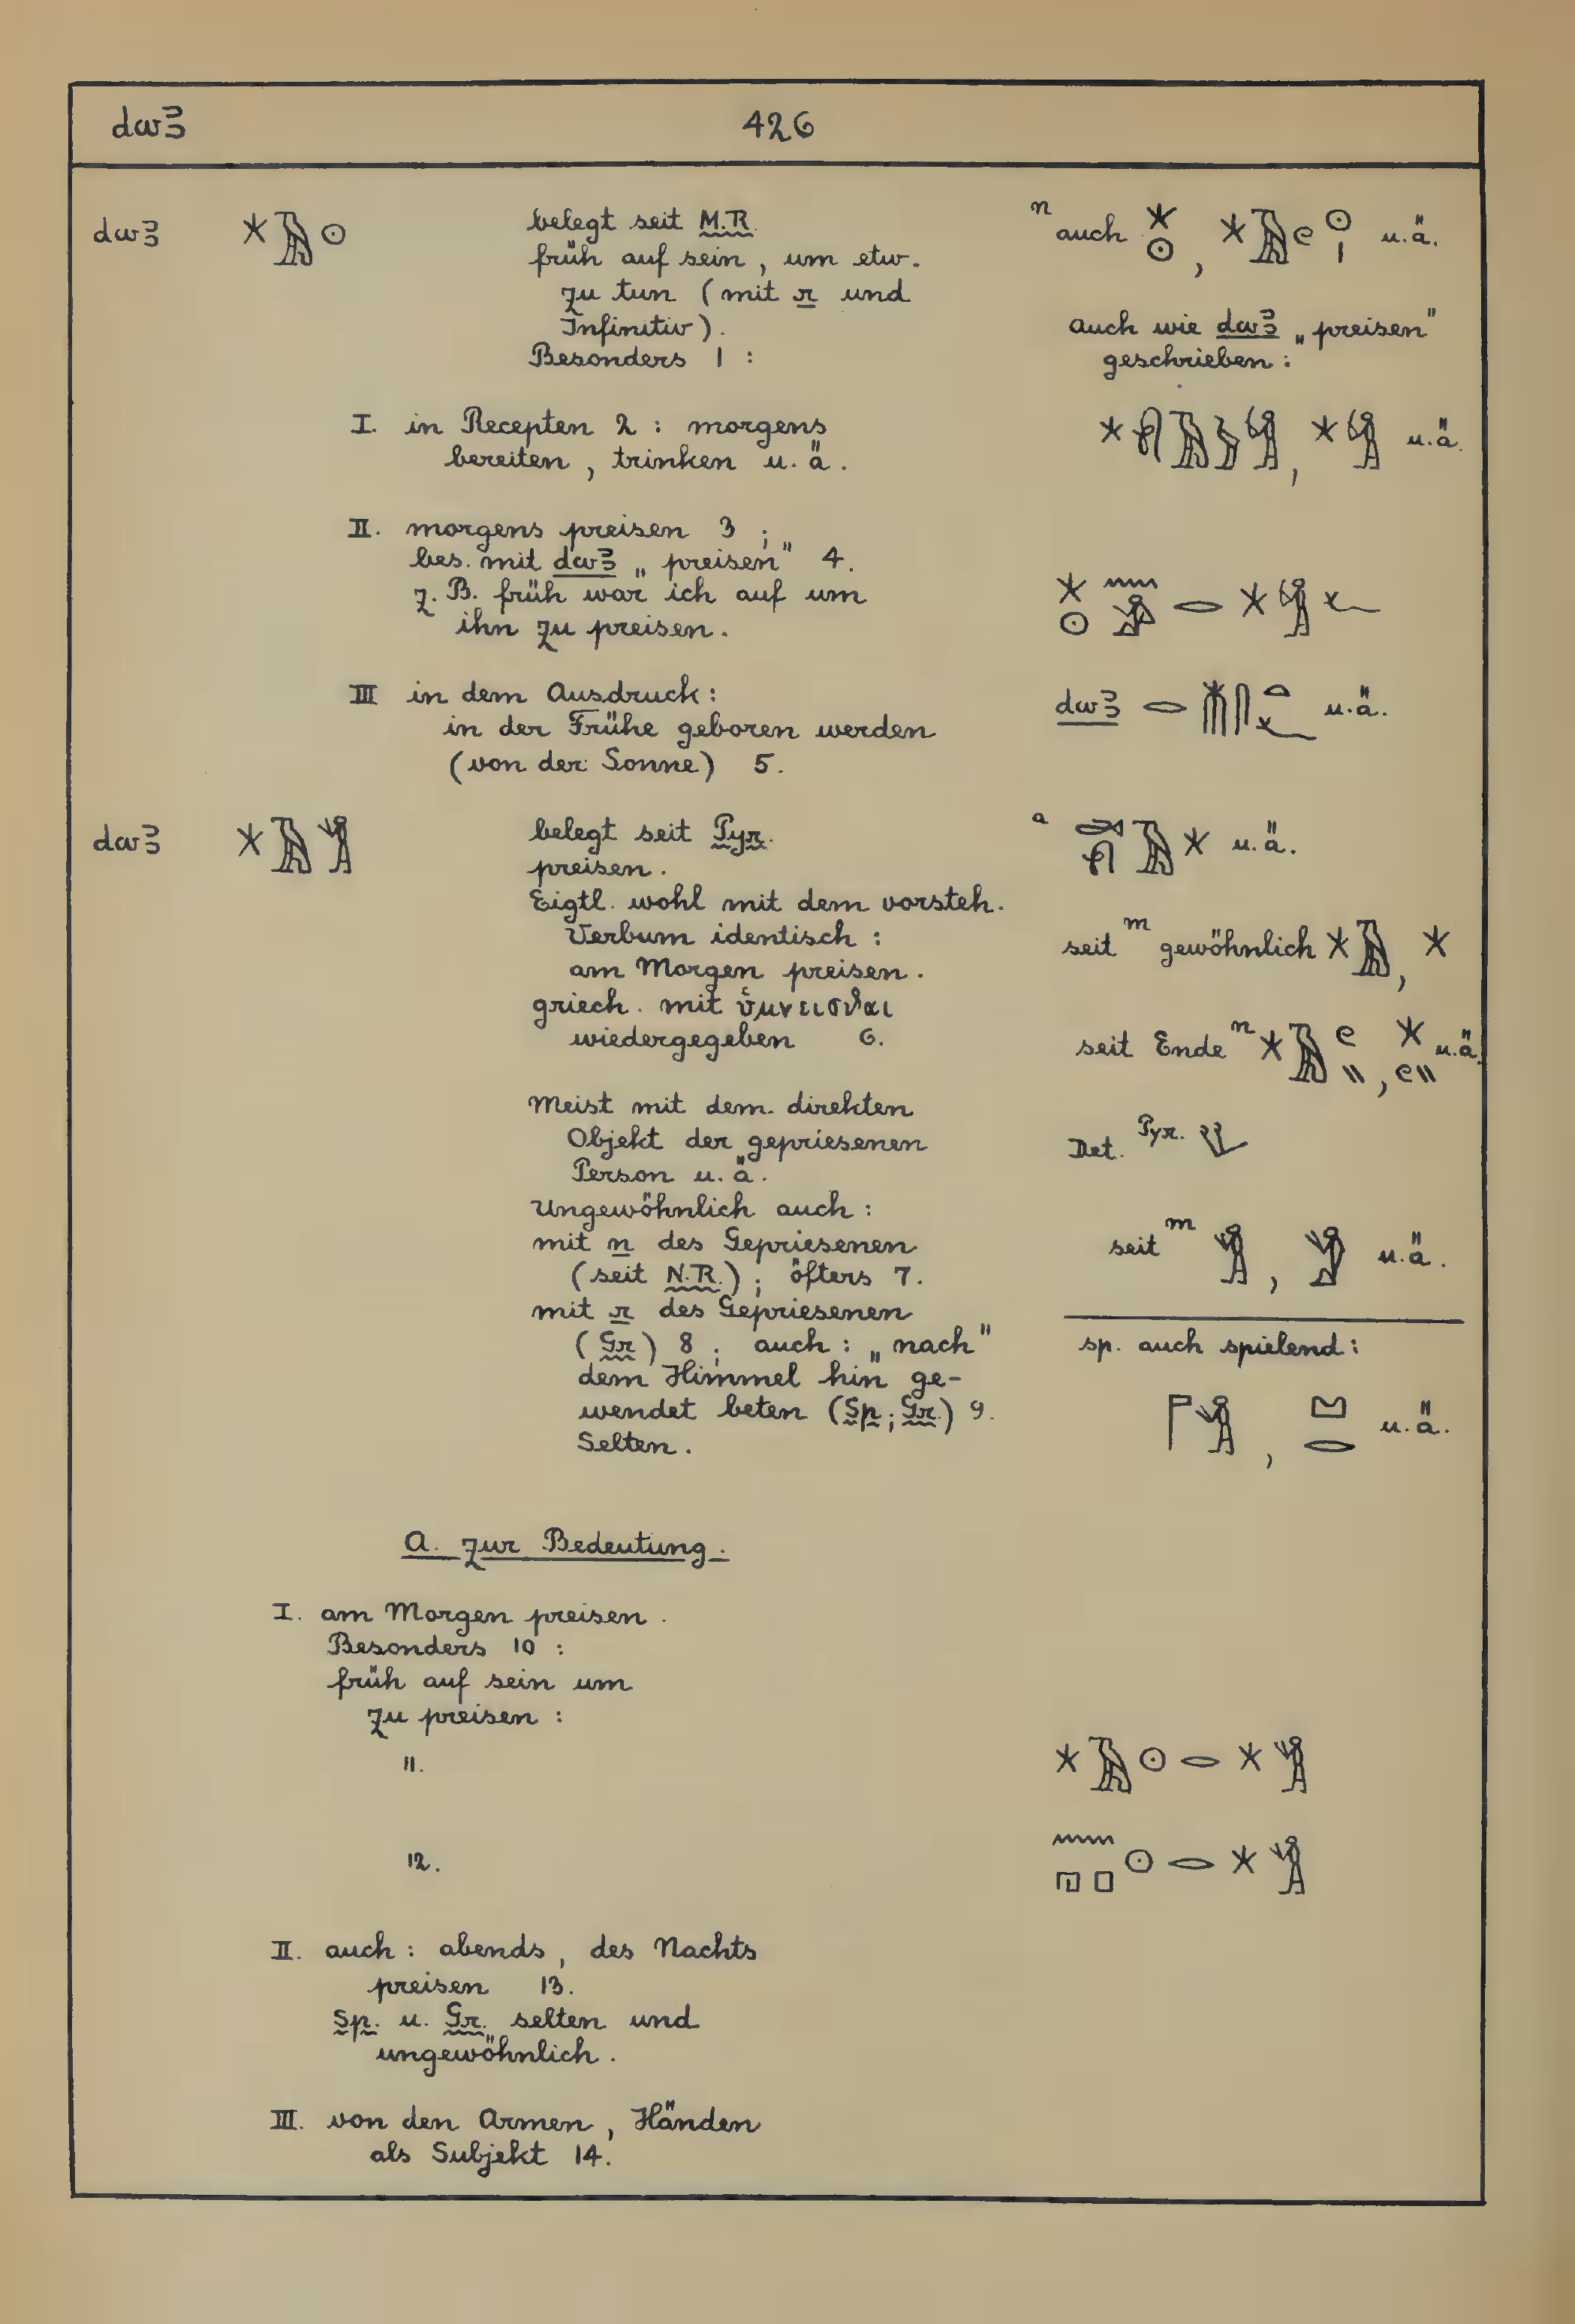 dwꜣ 426
dwꜣ
belegt seit M.R.
früh auf sein, um etw.
zu tun (mit r und
Infinitiv).
Besonders 1 :
n auch , u.ä.
auch wie dwꜣ „preisen"
geschrieben :
I. in Recepten 2 : morgens
bereiten, trinken u.ä.
, u.ä.
II. morgens preisen 3 ;
bes. mit dwꜣ „preisen" 4.
z.B. früh war ich auf um
ihn zu preisen.
III in dem Ausdruck :
in der Frühe geboren werden
(von der Sonne) 5.
dwꜣ u.ä.
dwꜣ
belegt seit Pyr.
preisen.
Eigtl. wohl mit dem vorsteh.
Verbum identisch :
am Morgen preisen.
griech. mit ὑμνεισϑαι
wiedergegeben 6.
a u.ä.
seit m gewöhnlich ,
seit Ende n , u.ä.
Meist mit dem direkten
Objekt der gepriesenen
Person u.ä.
Ungewöhnlich auch :
mit n des Gepriesenen
(seit N.R.) ; öfters 7.
mit r des Gepriesenen
(Gr) 8 ; auch : „nach"
dem Himmel hin ge-
wendet beten (Sp ; Gr.) 9.
Selten.
Det. Pyr.
seit m , u.ä.
sp. auch spielend :
, u.ä.
A. Zur Bedeutung.
I. am Morgen preisen.
Besonders 10 :
früh auf sein um
zu preisen :
11.
12.
II. auch : abends, des Nachts
preisen 13.
Sp. u. Gr. selten und
ungewöhnlich.
III. von den Armen, Händen
als Subjekt 14.